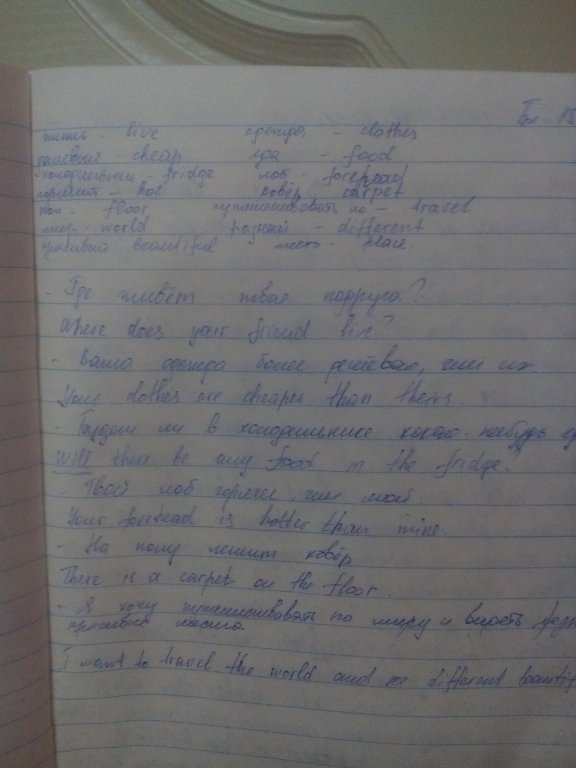 жить - live одежда - clothes
дешёвый - cheap еда - food
холодильник - fridge лоб - forehead
горячий - hot ковёр - carpet
пол - floor путешествовать по - travel
мир - world разный - different
красивый - beautiful место - place
- Где живёт твоя подруга?
Where does your friend live?
- Ваша одежда более дешёвая, чем их
Your clothes are cheaper than theirs.
- Будет ли в холодильнике какая-нибудь
Will there be any food in the fridge?
- Твой лоб горячее, чем мой.
Your forehead is hotter than mine.
- На полу лежит ковёр
There is a carpet on the floor.
- Я хочу путешествовать по миру и видеть
красивые места.
I want to travel the world and see different